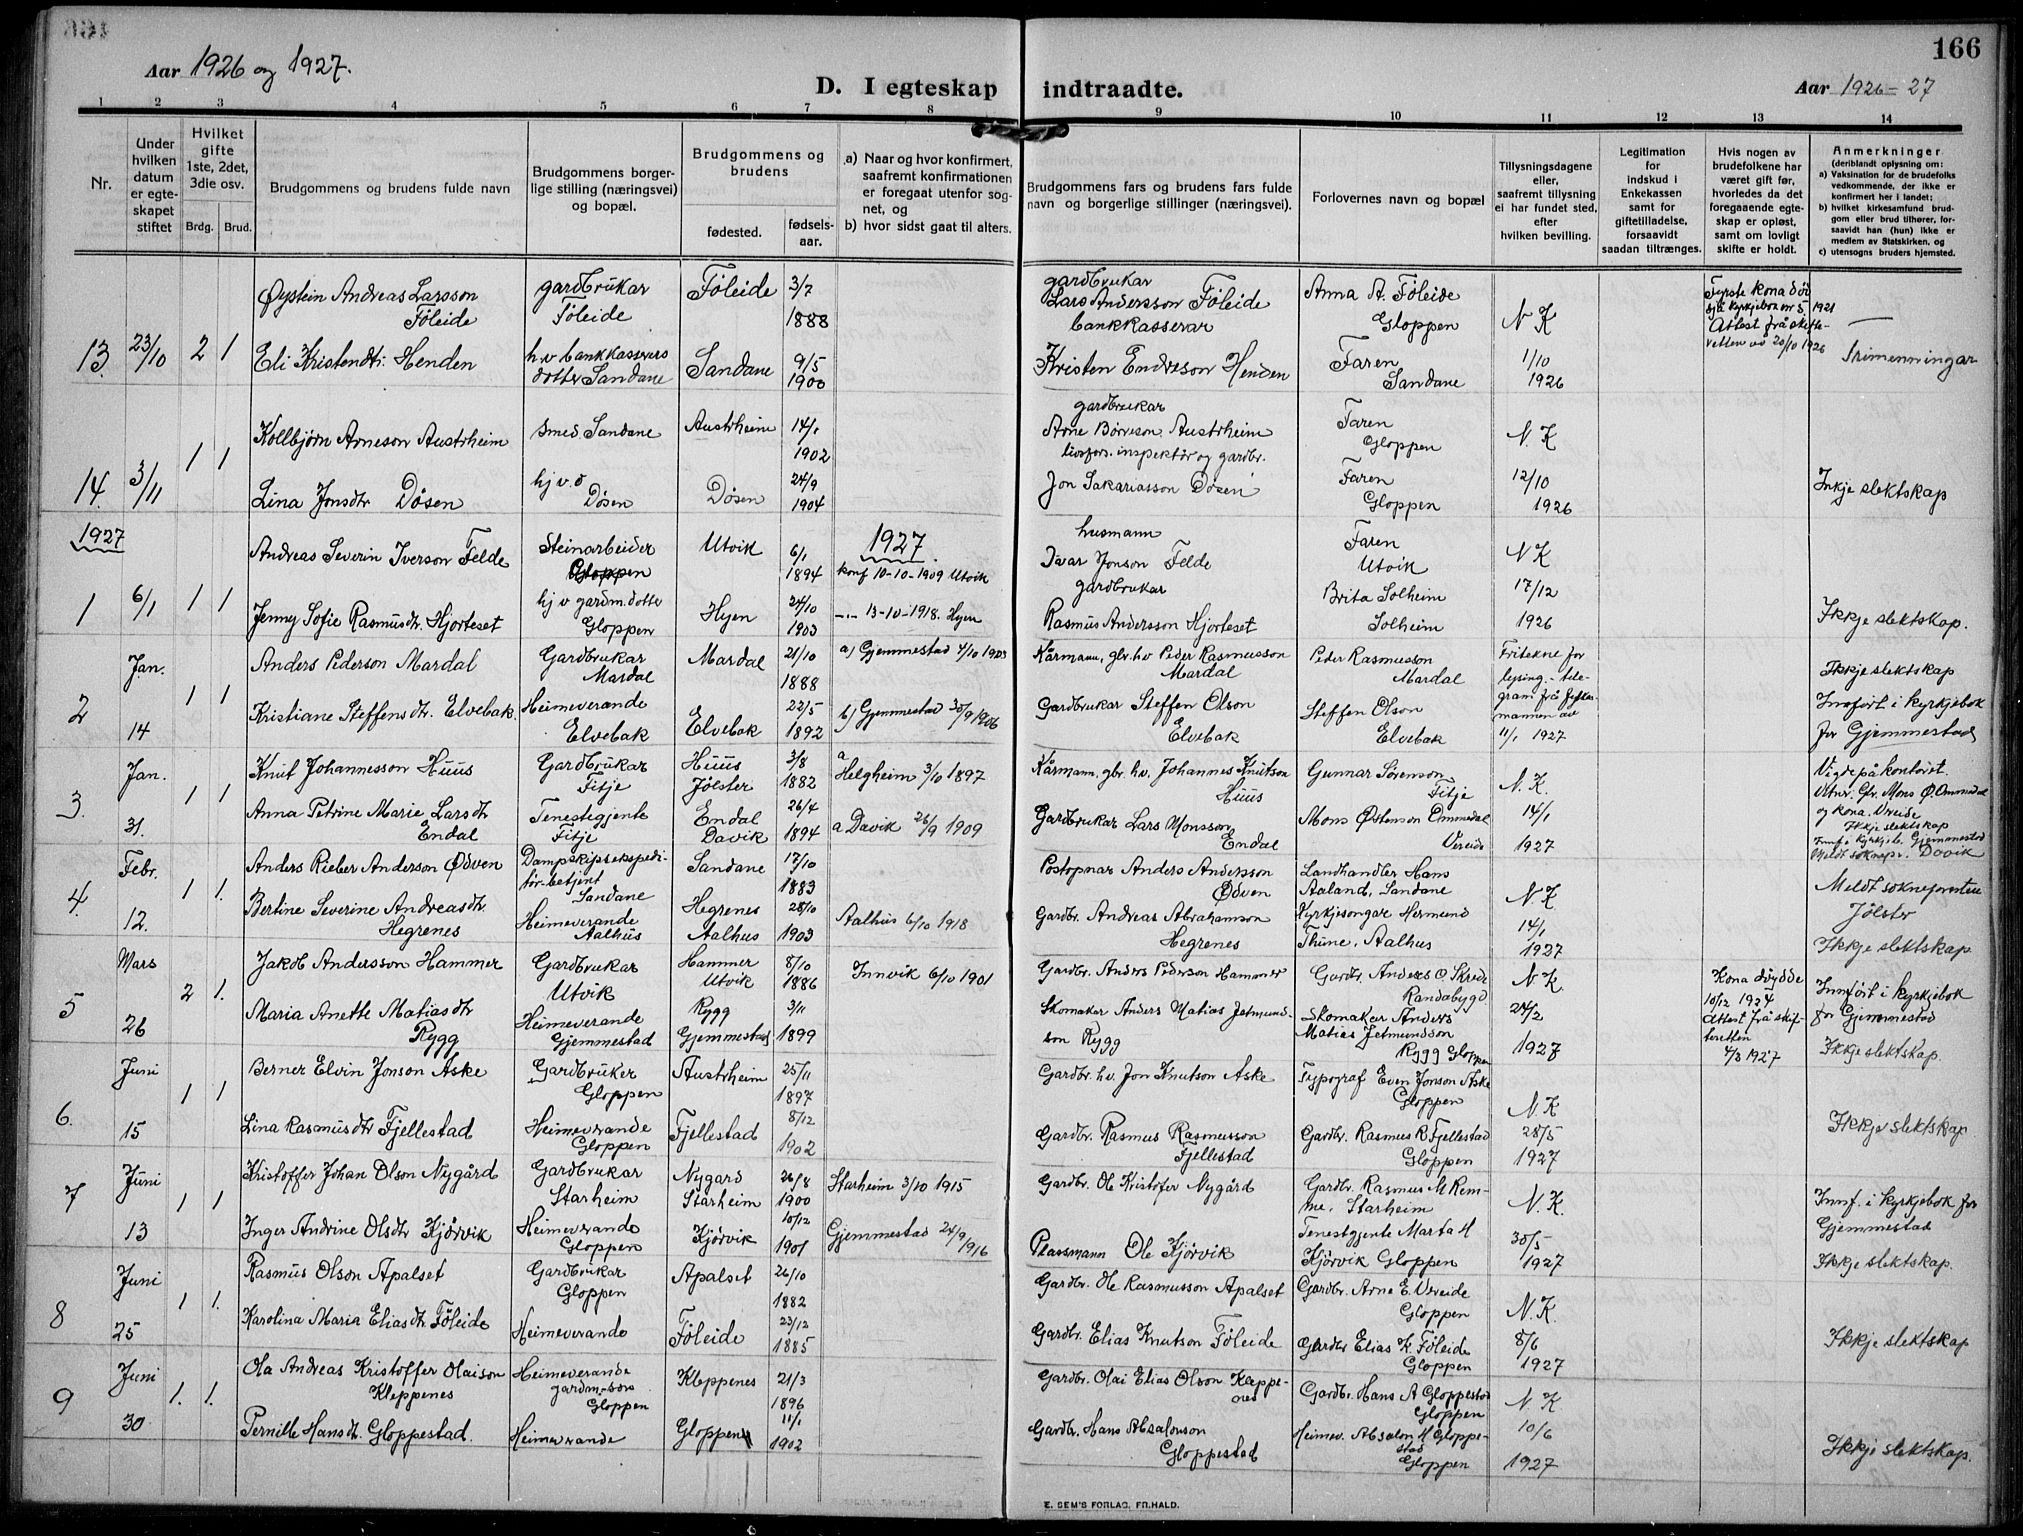 166
Aar 1926 og 1927.
D. I egteskap indtraadte.
Aar 1926-27
1 2 3 4 5 6 7 8 9 10 11 12 13 14
Nr.
Under hvilken datum er egteskapet stiftet
Hvilket gifte 1ste, 2det, 3die osv.
Brdg. Brud.
Brudgommens og brudens fulde navn
Brudgommens borgerlige stilling (næringsvei) og bopæl.
Brudgommens og brudens
fødested.
fødselsaar.
a) Naar og hvor konfirmert, saafremt konfirmationen er foregaat utenfor sognet, og
b) hvor sidst gaat til alters.
Brudgommens fars og brudens fars fulde navn og borgerlige stillinger (næringsvei).
Forlovernes navn og bopæl
Tillysningsdagene eller, saafremt tillysning ei har fundet sted, efter hvilken bevilling.
Legitimation for indskud i Enkekassen samt for giftetilladelse, forsaavidt saadan tiltrænges.
Hvis nogen av brudefolkene har været gift før, hvorledes da det foregaaende egteskap er opløst, samt om lovligt skifte er holdt.
Anmerkninger
(deriblandt oplysning om:
a) Vaksination for de brudefolks vedkommende, der ikke er konfirmert her i landet;
b) hvilket kirkesamfund brudgom eller brud tilhører, forsaavidt han (hun) ikke er medlem av Statskirken, og
c) utensogns bruders hjemsted.
13. 23/10 2 1
Øystein Andreas Larsson Føleide
gardbrukar Føleide
Føleide 3/7 1888
gardbrukar Lars Andersson Føleide bankkasserar
Anna A. Føleide Gloppen
N K
Fyrste kona død
Attest frå skifteretten av 20/10 1926
Eli Kristendtr. Henden
h.v bankkasserers dotter Sandane
Sandane 9/5 1900
Kristen Endreson Henden
Faren Sandane
1/10 1926
Trimenningar
14. 3/11 1 1
Kollbjørn Arneson Austrheim
smed Sandane
Austrheim 14/1 1902
gardbrukar Arne Børreson Austrheim
Faren Gloppen
N. K
Lina Jonsdtr Døsen
hj v.d Døsen
Døsen 24/9 1904
livsfors. inspektør og gardbr. Jon Sakariasson Døsen
Faren Gloppen
12/10 1926
Inkje slektskap
1927
1927.
1 6/1 1 1
Andreas Severin Iverson Felde
Steinarbeider Gloppen
Utvik 6/1 1894
konf 10-10-1909 Utvik
husmann Ivar Jonson Felde
Faren Utvik
N K
Jenny Sofie Rasmusdtr. Hjorteset
hj v gardm. dotte Gloppen
Hyen 24/10 1903
-"- 13-10-1918. Hyen
gardbrukar Rasmus Andersson Hjorteset
Brita Solheim Solheim
17/12 1926
Ikkje slektskap.
2 Jan. 14 1 1
Anders Pederson Mardal
Gardbrukar Mardal
Mardal 21/10 1888
a) Gjemmestad 4/10 1903
Kårmann, glr. hv Peder Rasmusson Mardal
Peder Rasmusson Mardal
Fritekne for lysing - telegram frå
mannen av 11/1 1927
Ikkje slektskap
Kristiane Steffensdtr. Elvebak.
Heimeverande Elvebak
Elvebak 22/5 1892
b) Gjemmestad 30/9 1906
Gardbrukar Steffen Olson Elvebak
Steffen Olson Elvebak
Innført i kyrkjebok for Gjemmestad
3. Jan. 31. 1 1
Knut Johannesson Huus
Gardbrukar Fitje
Huus Jølster 3/8 1882
a Helgheim 3/10 1897
Kårmann, gbr. hv. Johannes Knutson Huus
Gunnar Sørenson Fitje
N. K.
Vigde på kontoret.
Vitnr. Gbr. Mons Ø. Ommedal og kona Vereide
Anna Petrine Marie Larsdtr Endal
Tenestegjente Fitje
Endal Davik 26/4 1894
a Davik 26/9 1909
Gardbrukar Lars Monsson Endal
Mons Østenson Ommedal Vereide
14/1 1927
Ikkje slektskap
Innf. i kyrkjeb. Gjemmestad
Meldt soknepr. Davik
4. Febr. 12. 1 1.
Anders Rieber Anderson Ødven
Dampskipsekspeditør-betjent Sandane
Sandane 17/10 1883
Postopnar Anders Andersson Ødven
Landhandler Hans Aaland, Sandane
N K
Meldt soknepresten Jølster
Bertine Severine Andreasdtr. Hegrenes
Heimeverande Aalhus
Hegrenes Aalhus 28/10 1903
Aalhus 6/10 1918
Gardbr. Andreas Abrahamson Hegrenes
Kyrkjesongar Hermund Thune, Aalhus
14/1 1927
Ikkje slektskap
5 Mars 26 2 1.
Jakob Andersson Hammer
Gardbrukar Utvik
Hammer Utvik 8/10 1886
Innvik 6/10 1901
Gardbr. Anders Pederson Hammer
Gardbr. Anders O Skrede Randabygd
N K.
Kona døydde 10/12 1924
Attest frå skifteretten 4/3 1927
Innført i kyrkjebok for Gjemmestad
Maria Anette Matiasdtr Rygg
Heimeverande Gjemmestad
Rygg Gjemmestad 3/11 1899
Skomaker Anders Matias Jetmundson Rygg
Skomaker Anders Matias Jetmundson Rygg Gloppen
24/2 1927
Ikkje slektskap.
6. Juni 15 1 1
Berner Elvin Jonson Aske
Gardbruker Gloppen
Austrheim 25/11 1897
Gardbr. hv. Jon Knutson Aske
Typograf Even Jonson Aske Gloppen
N. K
Lina Rasmusdtr Fjellestad
Heimeverande Gloppen
Fjellestad 8/12 1902
Gardbr. Rasmus Rasmusson Fjellestad
Gardbr. Rasmus R Fjellestad Gloppen
28/5 1927
Ikkje slektskap
7 Juni 13 1 1
Kristoffer Johan Olson Nygård
Gardbrukar Starheim
Nygard Starheim 26/8 1900
Starheim 3/10 1915
Gardbr. Ole Kristofer Nygård
Gardbr. Rasmus M Remme, Starheim
N. K.
Innf. i kyrkjebok for Gjemmestad
Inger Andrine Olsdtr Kjørvik
Heimeverande Gloppen
Kjørvik 10/12 1901
Gjemmestad 24/9 1916
Plassmann Ole Kjørvik
Tenestgjente Marta M Kjørvik Gloppen
30/5 1927
Ikkje slektskap.
8 Juni 25 1 1.
Rasmus Olson Apalset
Gardbrukar Gloppen
Apalset 26/10 1882
Gardbr. Ole Rasmusson Apalset
Gardbr. Arne E. Vereide Gloppen
N. K.
Karolina Maria Eliasdtr Føleide
Heimeverande
Føleide 23/12 1885
Gardbr. Elias Knutson Føleide
Gardbr Elias K. Føleide Gloppen
8/6 1927
Ikkje slektskap
9 Juni 30 1. 1.
Ola Andreas Kristoffer Olaison Kleppenes
Heimeverande gardm.-son Gloppen
Kleppenes 21/3 1896
Gardbr. Olai Elias Olson Kleppenes
Gardbr. Hans A Gloppestad Gloppen
N K
Pernille Hansdtr. Gloppestad.
Heimeverande
Gloppen 11/1 1902
Gardbr. Hans Absalonson Gloppestad
Heimev. Absalon H Gloppestad Gloppen
10/6 1927
Ikkje slektskap.
E. SEM'S FORLAG, FR.HALD.